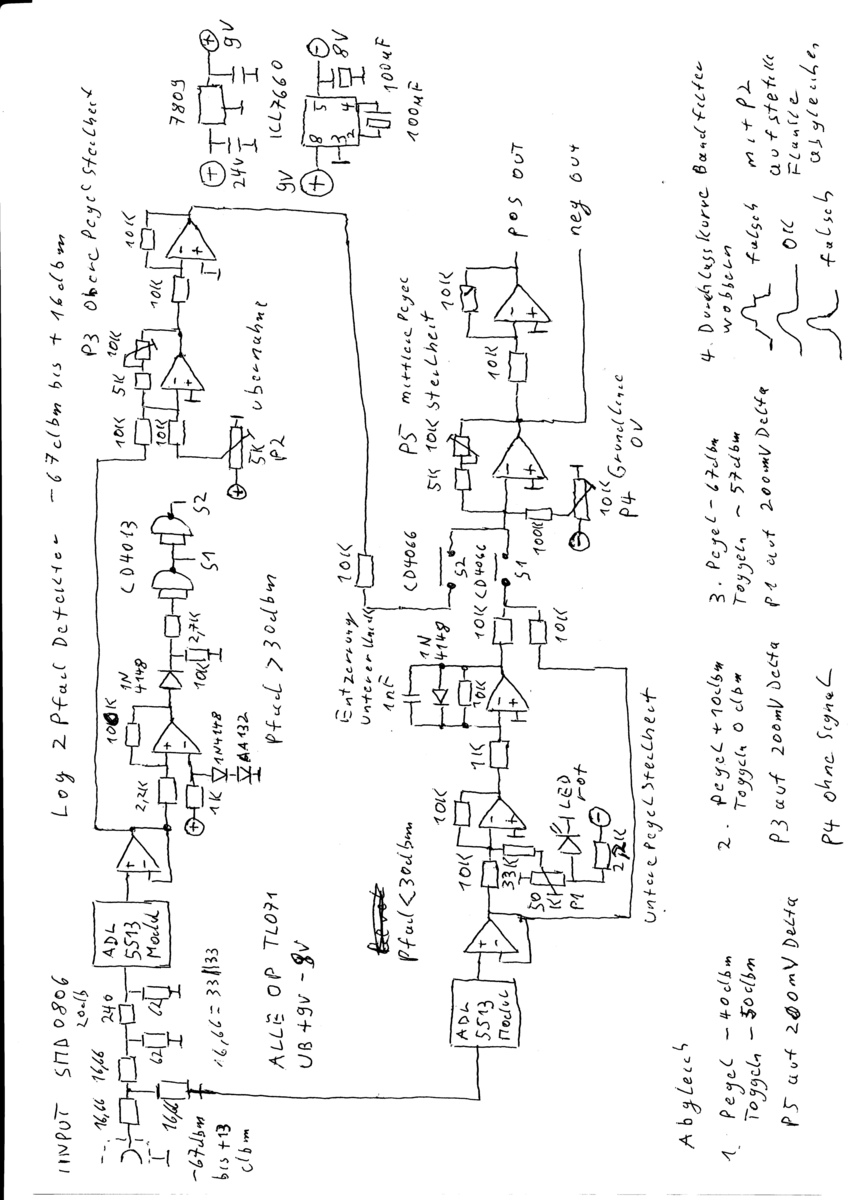 Log 2 Pfad Detektor -67dbm bis +16dbm
INPUT SMD0806
20db
16,66
16,66
240
62
62
16,66
16,66 = 33//33
-67dbm
bis +13
dbm
ADL
5513
Modul
ALLE OP TL071
UB +9V -8V
2,2K
100K
1K
1N4148
AA132
1N
4148
Pfad > 30dbm
2,7K
10K
CD4013
S1
S2
P3 Obere Pegel Steilheit
10K
10K
5K
10K
5K
P2
Übernahme
10K
10K
7809
24V
9V
ICL7660
9V
8
3
2
5
4
8V
100µF
100µF
Pfad < 30dbm
ADL
5513
Modul
10K
10K
33K
50
K
P1
LED
rot
2,2K
Untere Pegel Steilheit
1K
Entzerrung
unterer Knick
1nF
1N
4148
10K
10K
10K
10K
CD4066
S2
CD4066
S1
P5 mittlere Pegel
Steilheit
5K
10K
100K
10K
P4
Grundlinie
0V
10K
10K
pos OUT
neg Out
Abgleich
1. Pegel -40dbm
Toggeln -50dbm
P5 auf 200mV Delta
2. Pegel +10dbm
Toggeln 0dbm
P3 auf 200mV Delta
P4 ohne Signal
3. Pegel -67dbm
Toggeln -57dbm
P1 auf 200mV Delta
4. Durchlasskurve Bandfilter
wobbeln
falsch
OK
falsch
mit P2
auf steile
Flanke
abgleichen